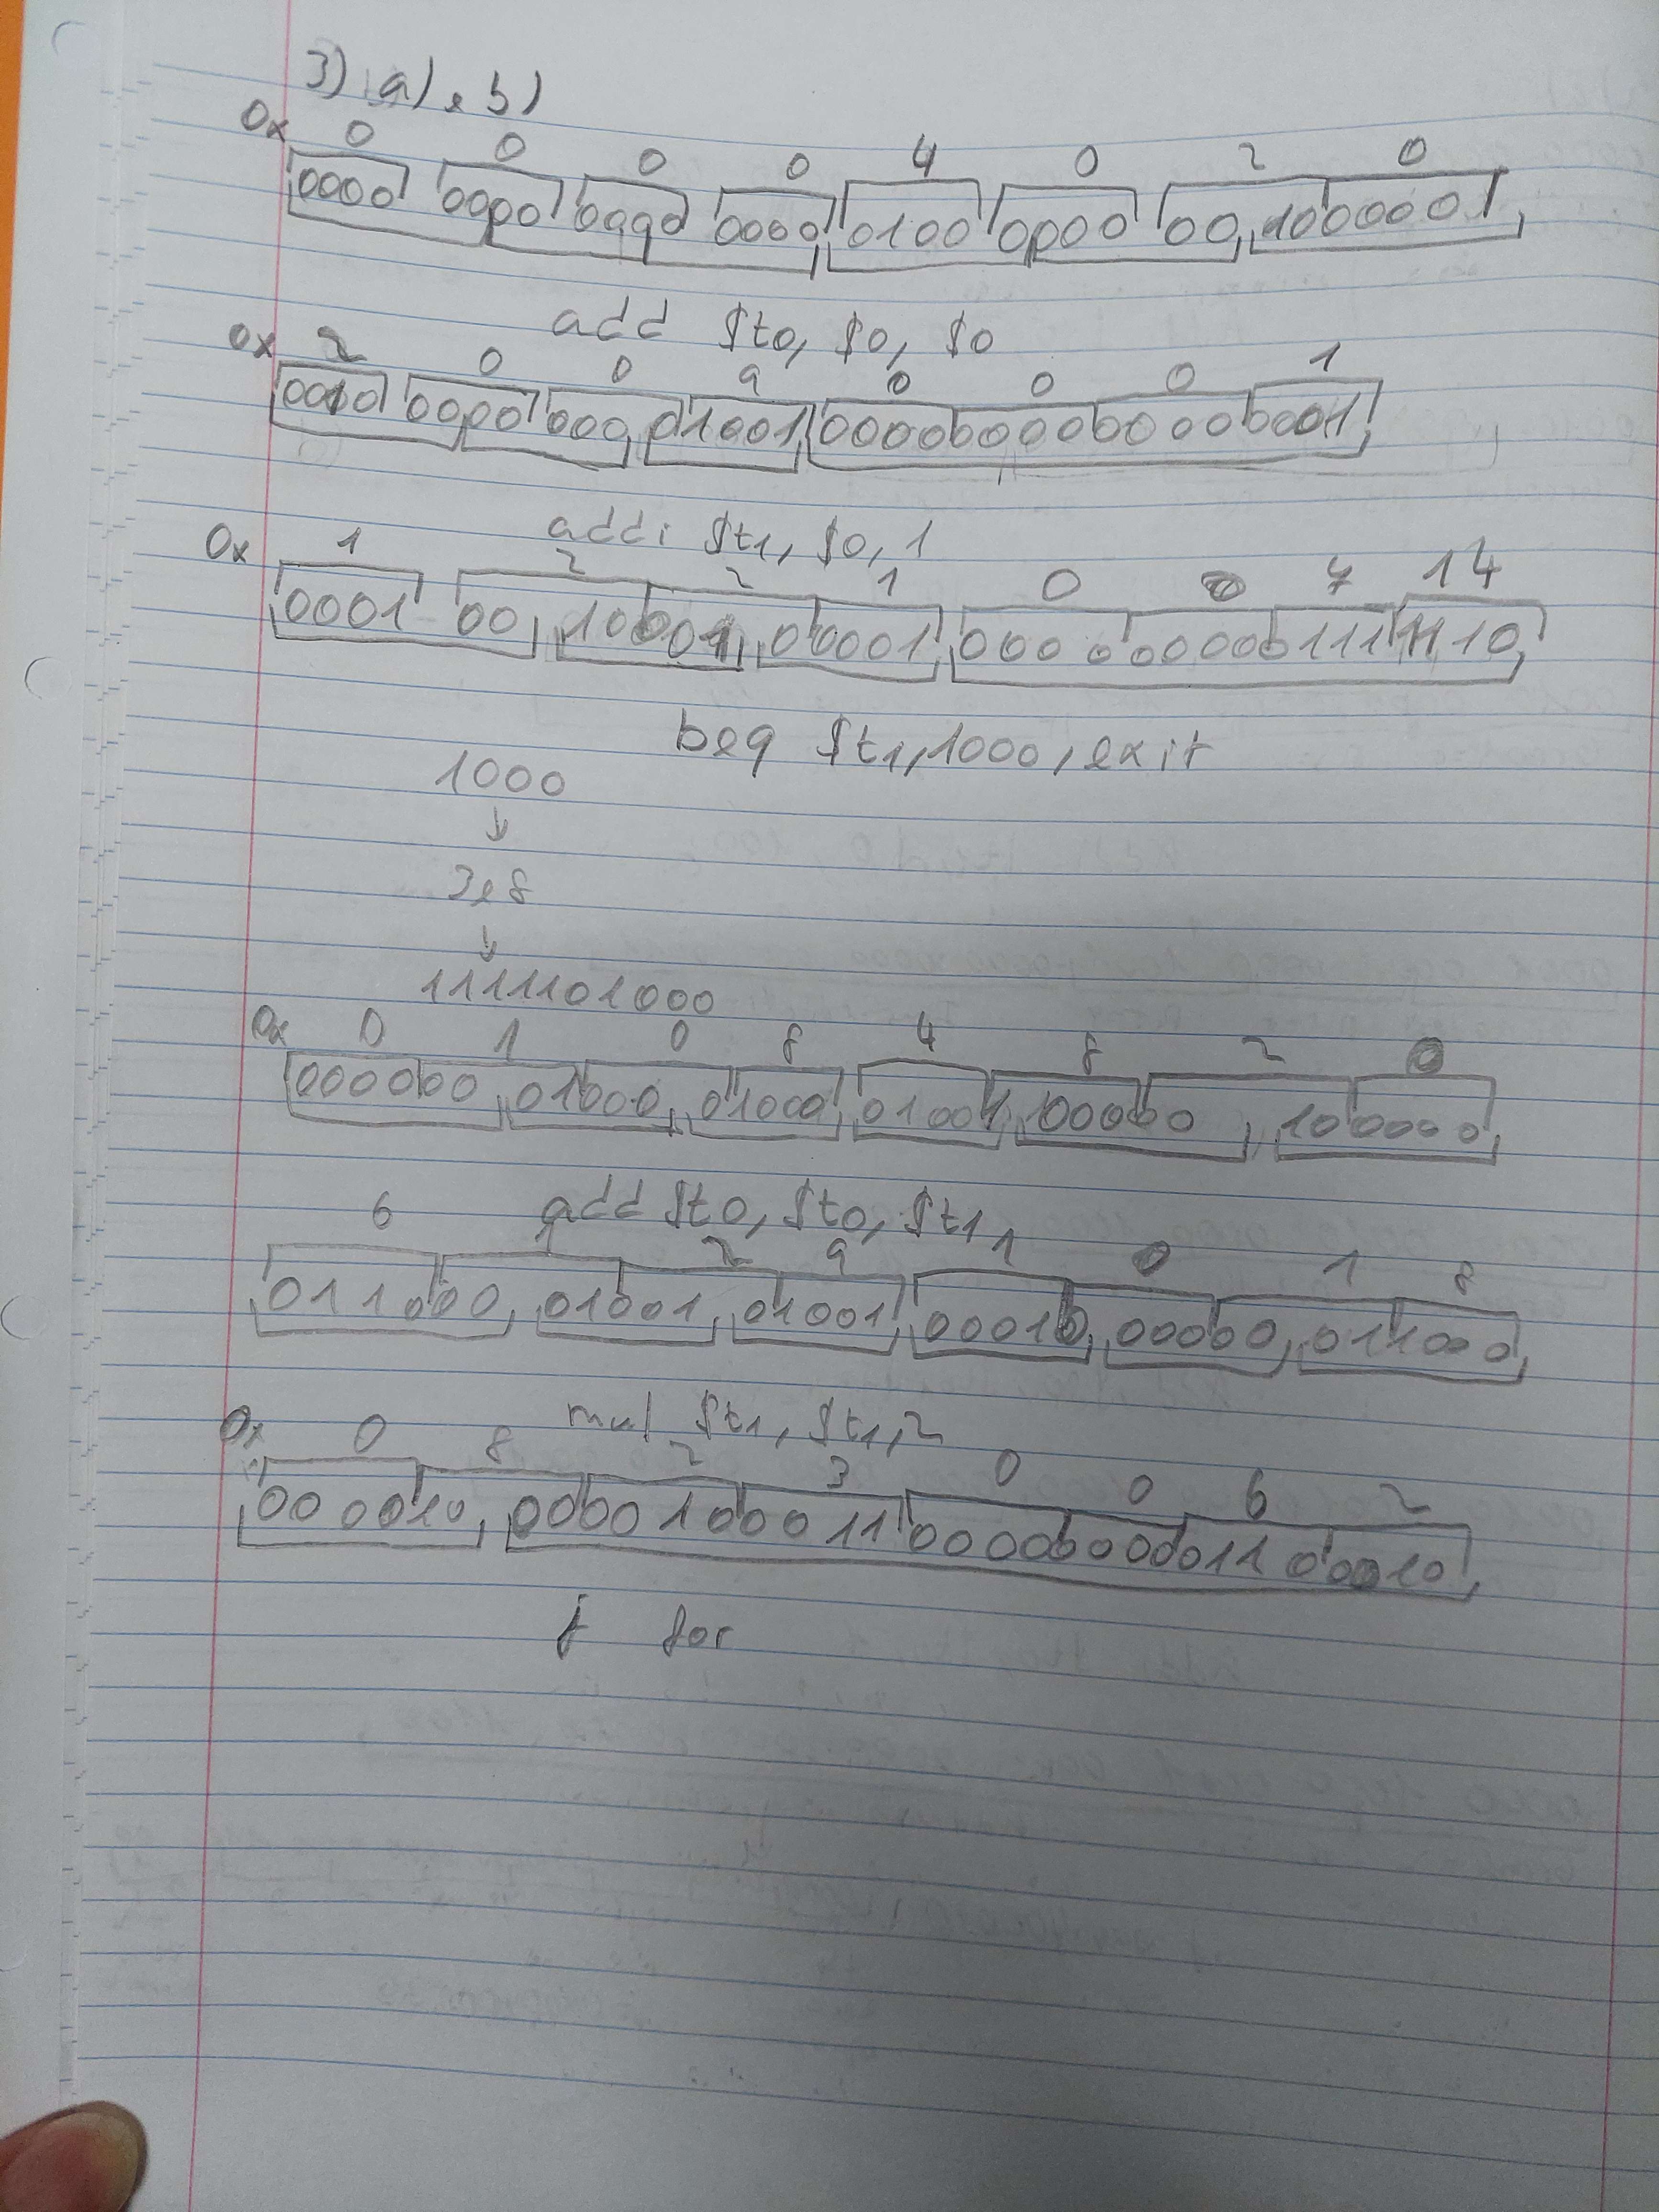 3) a), b)
0x 0 0 0 0 4 0 2 0
0000 0000 0000 0000 0100 0000 00 100000
add $t0, $0, $0
0x 2 0 0 9 0 0 0 1
0010 0000 000 01001 0000000000000001
addi $t1, $0, 1
0x 1 2 2 1 0 0 7 14
0001 00 10001 00001 0000000001111110
beq $t1, 1000, exit
1000
↓
3e8
↓
1111101000
0x 0 1 0 8 4 8 2 0
000000 01000 01000 01001 00000 100000
add $t0, $t0, $t1
6 1 2 9 1 0 1 8
011000 01001 01001 00010 00000 011000
mul $t1, $t1, 2
0x 0 8 2 3 0 0 6 2
000010 00001000110000000001100010
j for